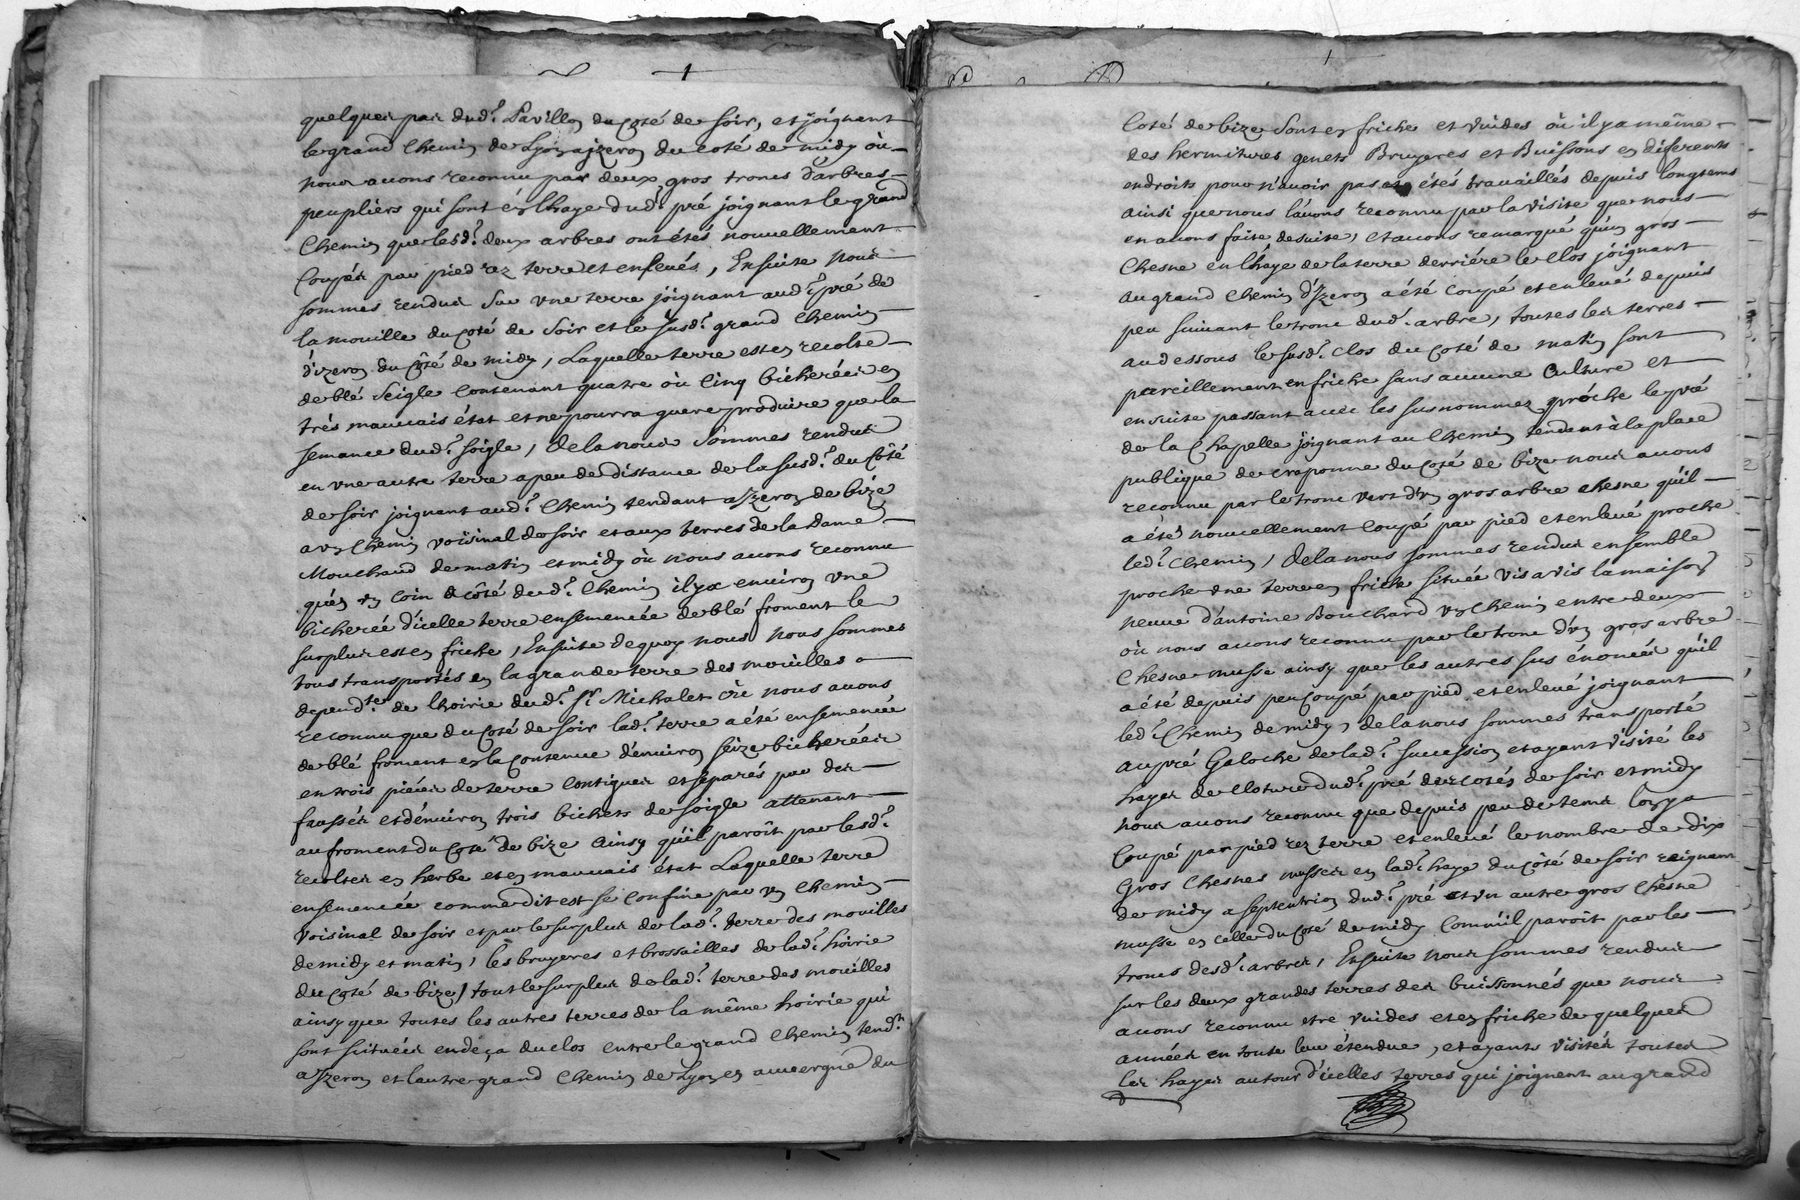 quelques pas dud.t Pavillon du Coté de soir, et joignant
le grand Chemin de Lyon a jzeron du coté de midy où
nous auons reconnu par deux gros troncs d'arbres
peupliers qui sont en lhaye dud.t pré joignant le grand
Chemin que lesd.t deux arbres ont étés nouuellement
Coupés par pied rez terre et enleués, Ensuite nous
sommes rendus sur vne terre joignant aud.t pré de
la mouille du coté de soir et le susd.t grand Chemin
d'izeron du côté de midy, Laquelle terre est en recolte
de blé seigle Contenant quatre où Cinq bicherées en
trés mauuais état et ne pourra guere produire que la
semance dud.t soigle, de la nous sommes rendus
en vne autre terre a peu de distance de la susd.t du côté
de soir joignant aud.t Chemin tendant a Jzeron de bize
a vn Chemin voisinal de soir et aux terres de la Dame
Mouchaud de matin et midy où nous auons reconnu
qu'en vn Coin a côté dud.t Chemin il y a enuiron vne
bicherée d'icelle terre ensemencée de blé froment le
surplus est en friche, Ensuite de quoy nous nous sommes
tous transportés en la grande terre des mouilles
depend.te de lhoirie dud.t S.r Michalet où nous auons
reconnu que du Coté de soir lad.t terre a été ensemencée
de blé froment en la Contenue d'enuiron seize bicherées
en trois piéces de terre Contigues et separés par des
faussés et d'enuiron trois bichets de soigle attenant
au froment du Coté de bize ainsy qu'il paroît par lesd.t
recoltes en herbe et en mauuais état Laquelle terre
ensemencée comme dit est se confine par vn Chemin
voisinal de soir et par le surplus de lad.t terre des mouilles
de midy et matin, les bruyeres et brossailles de lad.t hoirie
du Coté de bize, tout le surplus de lad.t terre des mouilles
ainsy que toutes les autres terres de la même hoirie qui
sont scituées en deça du clos entre le grand Chemin tend.t
a Jzeron et lautre grand Chemin de Lyon en auuergne du
Coté de bize sont en friche et vuides où il y a même
des hermitures genets Bruyeres et Buissons en diferents
endroits pour n'auoir pas étés trauaillés depuis longtems
ainsi que nous l'auons reconnu par la visite que nous
en auons faite de suite, et auons remarqué qu'un gros
Chesne en lhaye de la terre derriére le Clos joignant
au grand Chemin d'Jzeron a été Coupé et enleué depuis
peu suiuant le tronc dud.t arbre, toutes les terres
au dessous le susd.t Clos du Coté de matin sont
pareillement en friche sans aucune Culture et
ensuite passant auec les susnommez proche le pré
de la Chapelle joignant au Chemin tendant à la place
publique de craponne du Coté de bize nous auons
reconnu par le tronc vert d'vn gros arbre chesne qu'il
a été nouuellement Coupé par pied et enleué proche
led.t Chemin, de la nous sommes rendus ensemble
proche vne terre en friche située vis a vis la maison
neuue d'antoine Bouchard vn Chemin entre deux
où nous auons reconnu par le tronc d'vn gros arbre
Chesne musse ainsy que les autres sus énoncés qu'il
a été depuis peu Coupé par pied et enleué joignant
led.t Chemin de midy, de la nous sommes transporté
au pré Galoche de lad.t succession et ayant visité les
hayes de Cloture dud.t pré des cotés de soir et midy
nous auons reconnu que depuis peu de tems lon y a
Coupé par pied rez terre et enleué le nombre de dix
Gros Chesnes musses en lad.t haye du côté de soir reignant
de midy a septentrion dud.t pré et vn autre gros Chêsne
musse en celle du Coté de midy Comm'il paroit par les
troncs desd.t arbres, Ensuite nous sommes rendus
sur les deux grandes terres des buissonnés que nous
auons reconnu etre vuides et en friche de quelques
années en toute leur étendue, et ayants visités toutes
les hayes autour d'icelles terres qui joignent au grand